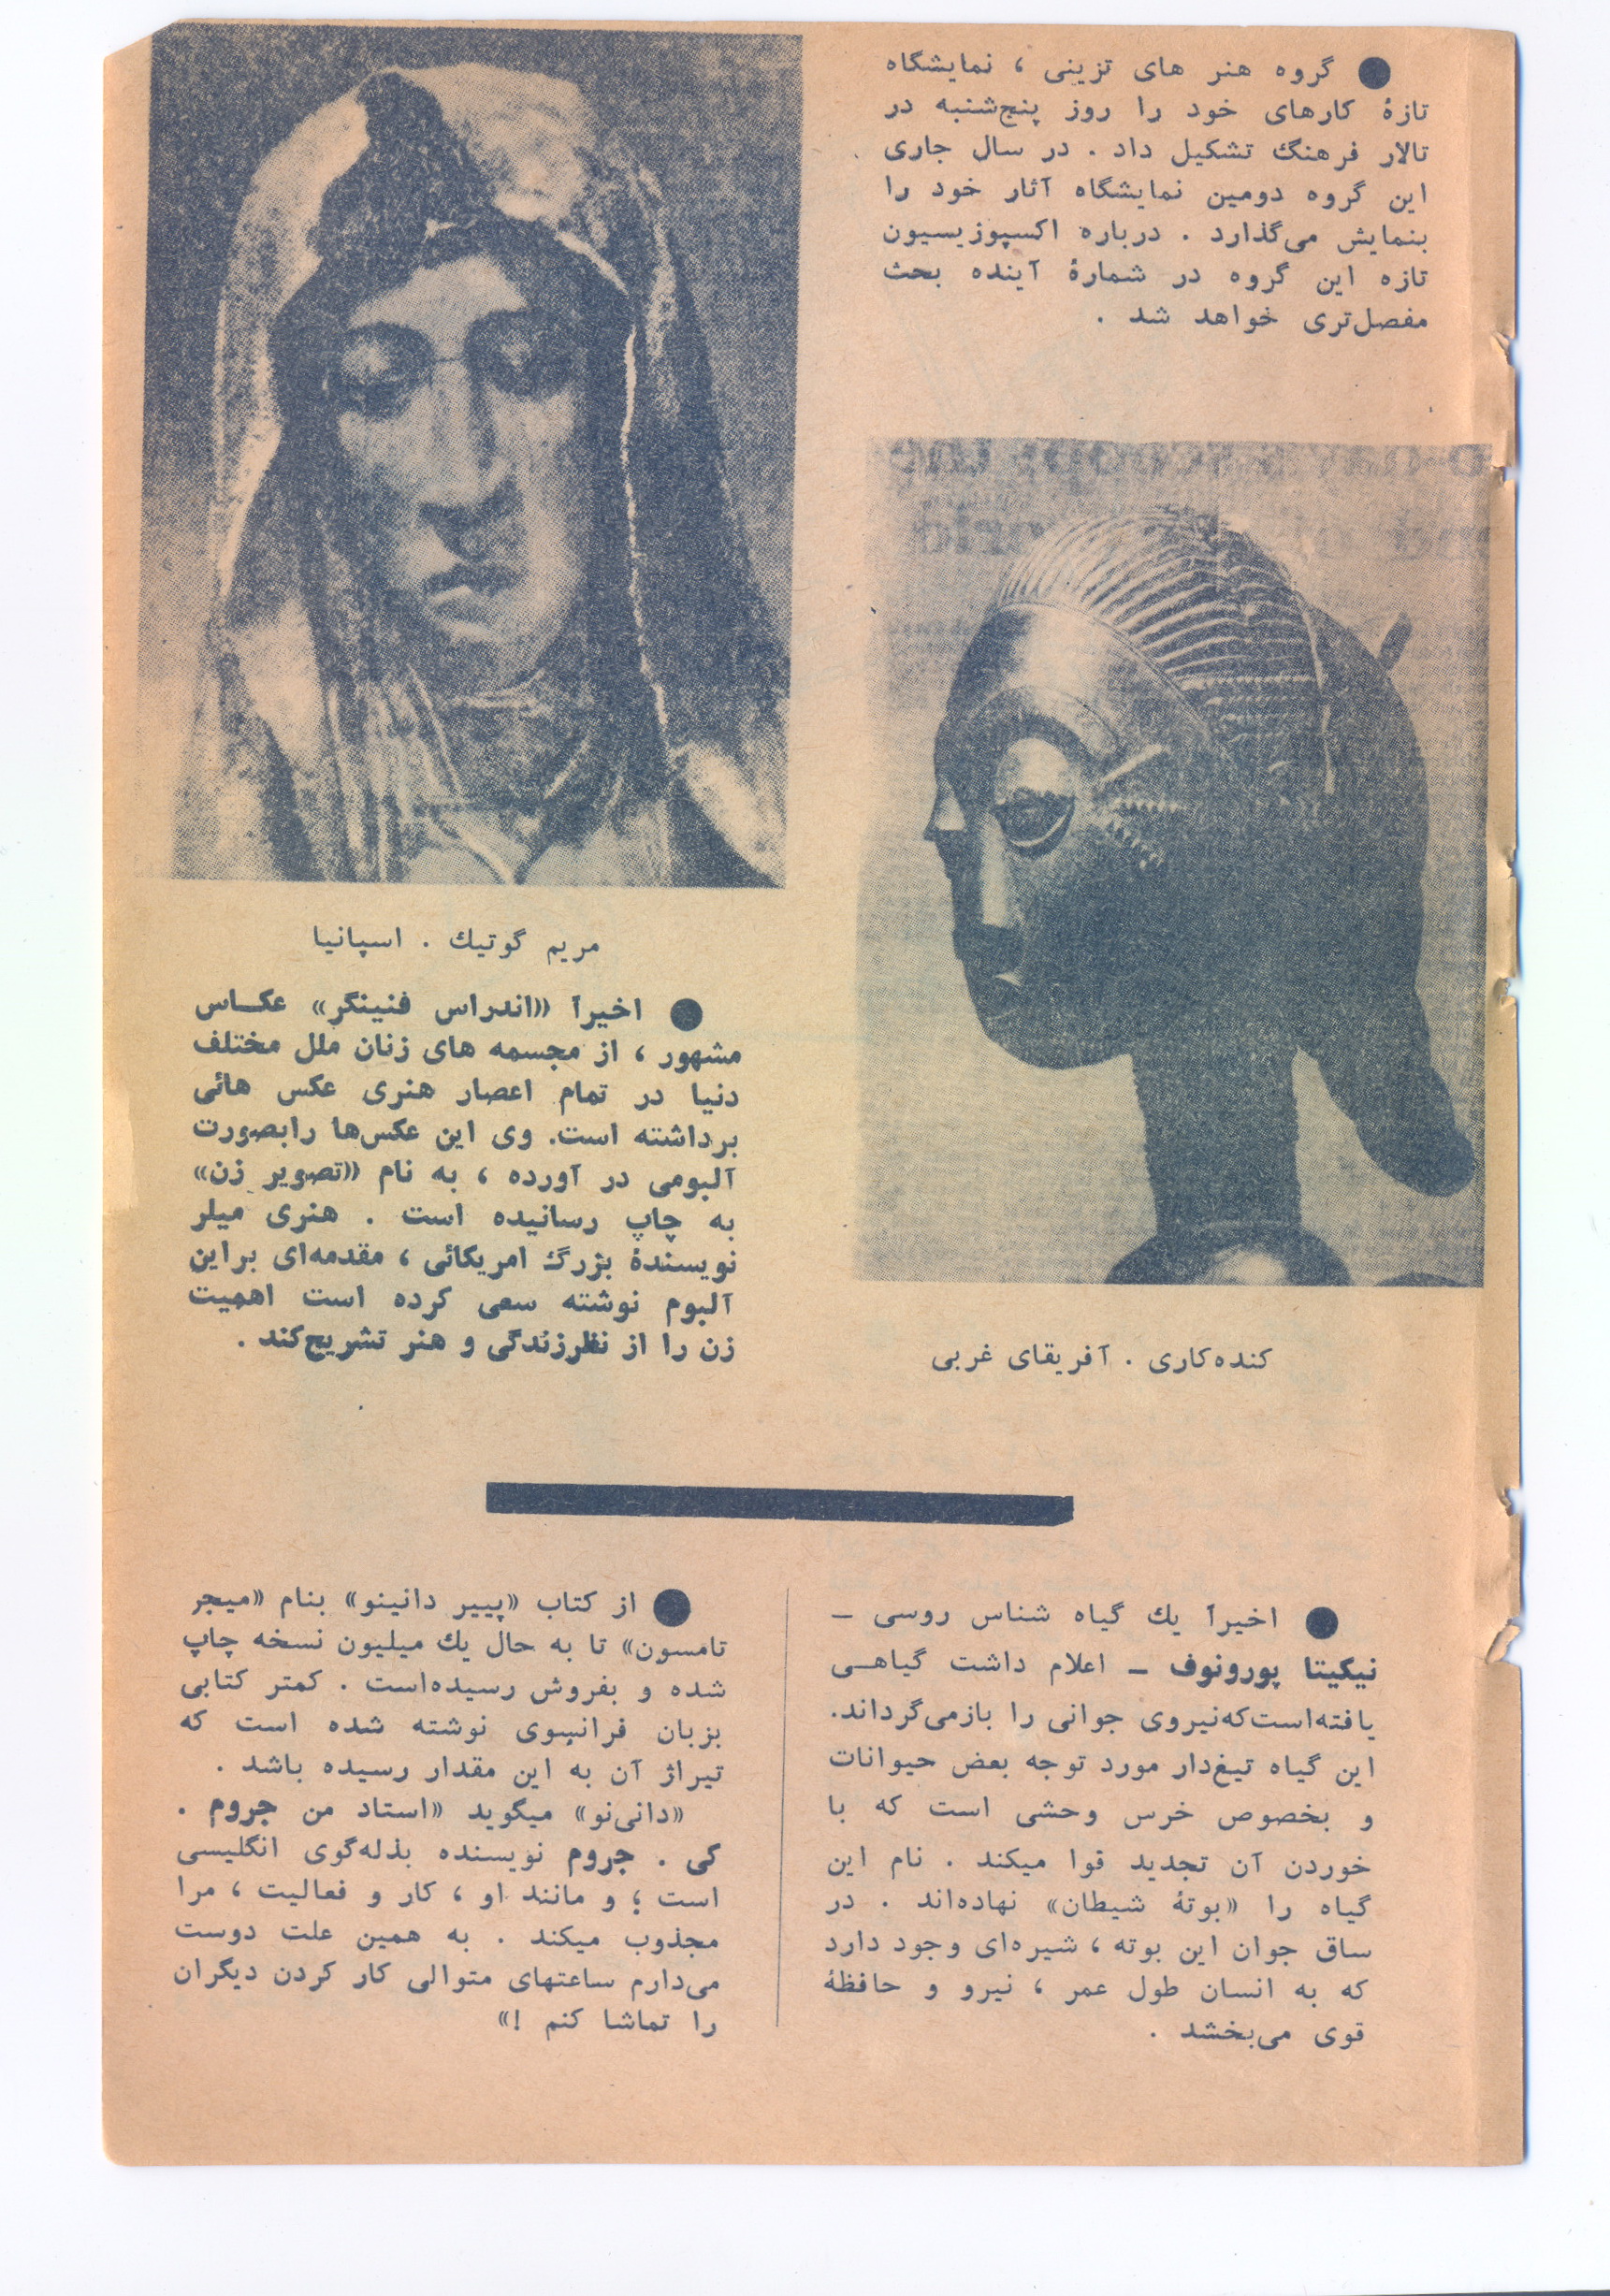 ● گروه هنر های تزینی ، نمایشگاه
تازهٔ کارهای خود را روز پنج‌شنبه در
تالار فرهنگ تشکیل داد . در سال جاری
این گروه دومین نمایشگاه آثار خود را
بنمایش می‌گذارد . درباره اکسپوزیسیون
تازه این گروه در شمارهٔ آینده بحث
مفصل‌تری خواهد شد .
کنده‌کاری . آفریقای غربی
مریم گوتیك . اسپانیا
● اخیرآ «اندراس فنینگر» عکــاس
مشهور ، از مجسمه های زنان ملل مختلف
دنیا در تمام اعصار هنری عکس هائی
برداشته است. وی این عکس‌ها رابصورت
آلبومی در آورده ، به نام «تصویر زن»
به چاپ رسانیده است . هنری میلر
نویسندهٔ بزرگ امریکائی ، مقدمه‌ای براین
آلبوم نوشته سعی کرده است اهمیت
زن را از نظرزندگی و هنر تشریح‌کند .
● اخیرآ یك گیاه شناس روسی ـ
نیکیتا پورونوف ـ اعلام داشت گیاهــی
یافته‌است‌که‌نیروی جوانی را بازمی‌گرداند.
این گیاه تیغ‌دار مورد توجه بعض حیوانات
و بخصوص خرس وحشی است که با
خوردن آن تجدید قوا میکند . نام این
گیاه را «بوتهٔ شیطان» نهاده‌اند . در
ساق جوان این بوته ، شیره‌ای وجود دارد
که به انسان طول عمر ، نیرو و حافظهٔ
قوی می‌بخشد .
● از کتاب «پییر دانینو» بنام «میجر
تامسون» تا به حال یك میلیون نسخه چاپ
شده و بفروش رسیده‌است . کمتر کتابی
بزبان فرانسوی نوشته شده است که
تیراژ آن به این مقدار رسیده باشد .
«دانی‌نو» میگوید «استاد من جروم .
کی . جروم نویسنده بذله‌گوی انگلیسی
است ؛ و مانند او ، کار و فعالیت ، مرا
مجذوب میکند . به همین علت دوست
می‌دارم ساعتهای متوالی کار کردن دیگران
را تماشا کنم !»